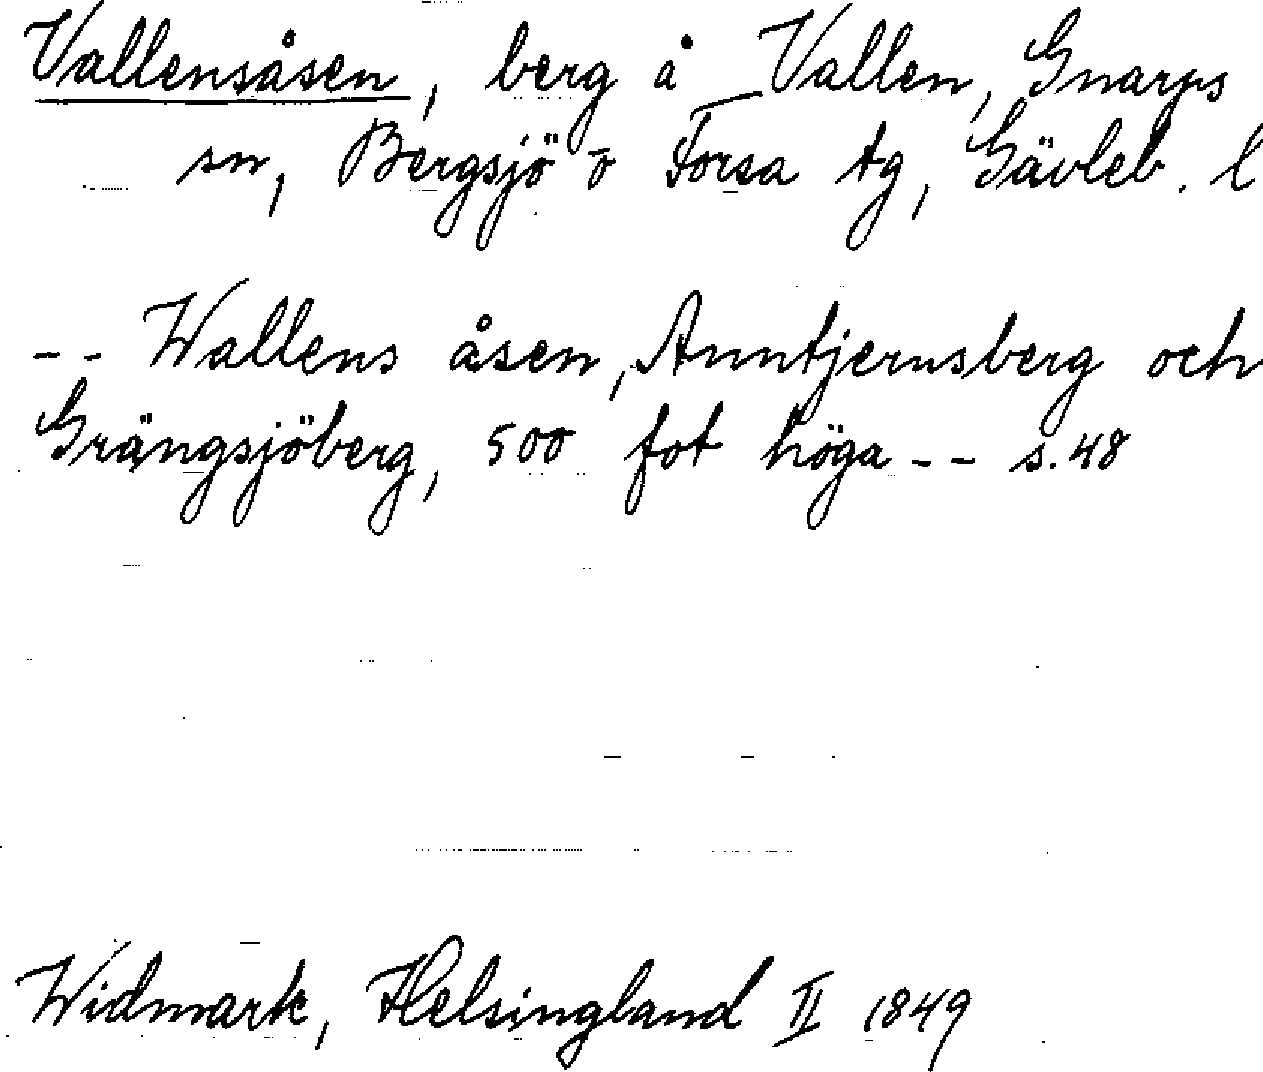 Vallensåsen, berg å Vallen, Gnarps
sn, Bergsjö o Forsa tg, Gävleb. l
-- Wallens åsen, Anntjernsberg och
Grängsjöberg, 500 fot höga -- s. 48
Widmark, Helsingland II 1849